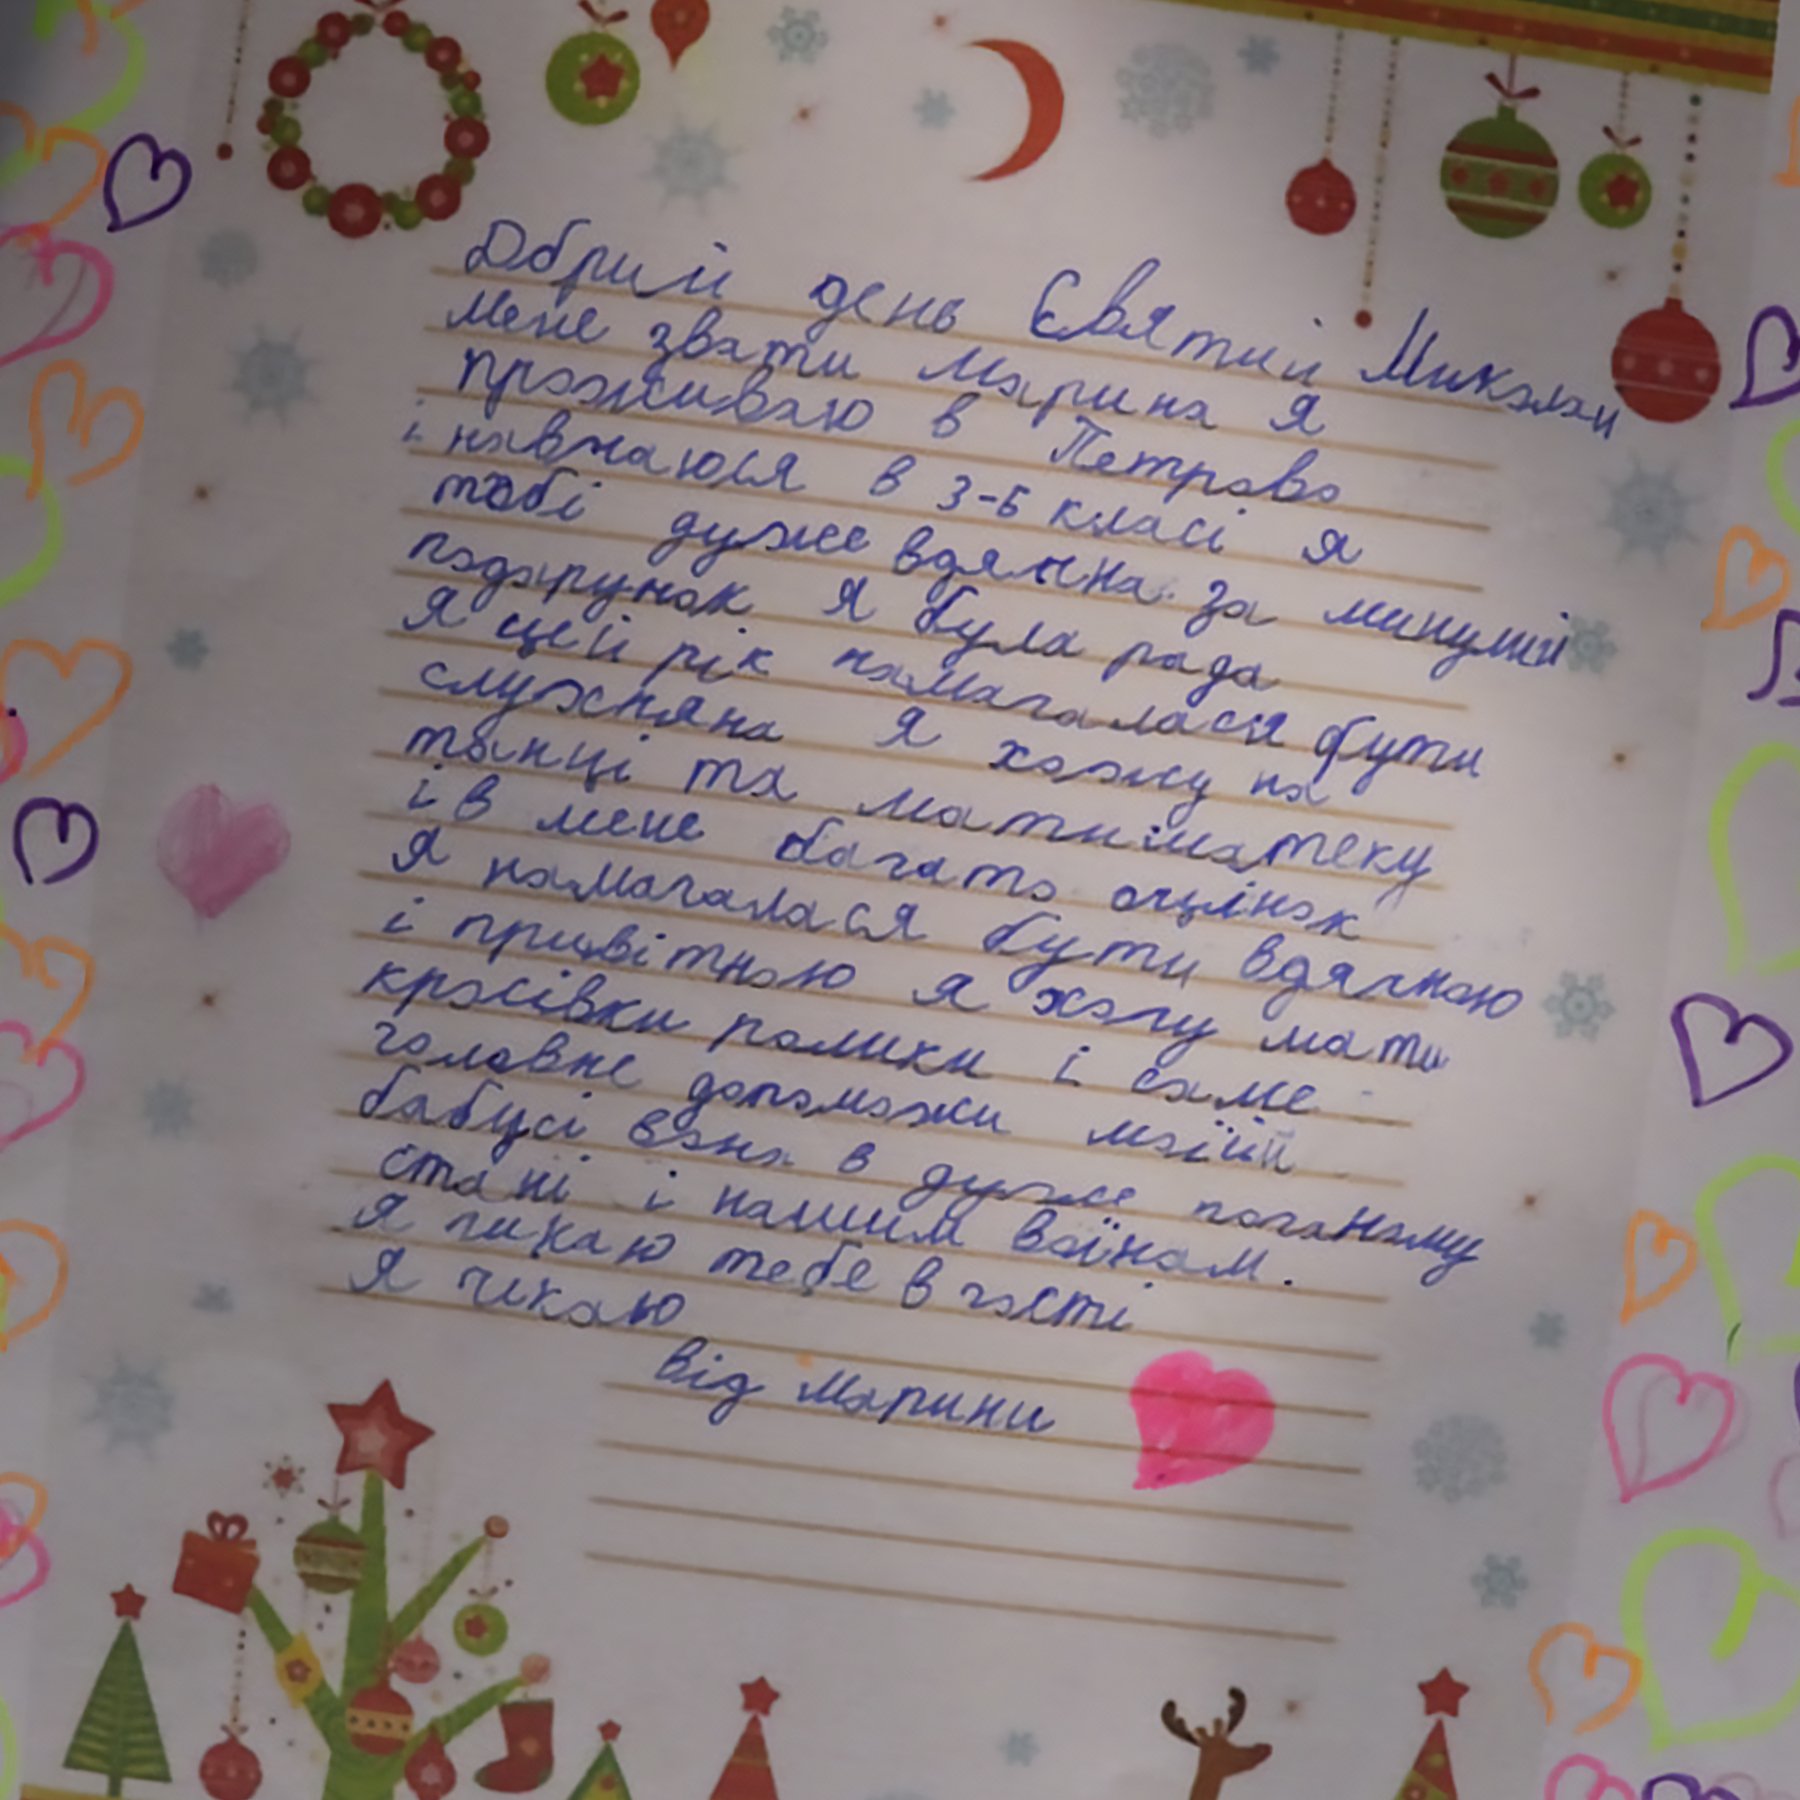 Дбрий день Євятий Миколай
мене звати Марина Я
проживаю в Петрово
і навчаюся в 3-Б класі я
тобі дуже вдячна за минулий
подарунок Я була рада
Я цей рік намагалася бути
слухняна Я хожу на
танці та матиматеку
і в мене багато оцінок
Я намагалася бути вдячною
і привітною я хочу мати
кросівки ролики і саме
головне допоможи моїй
бабусі вона в дуже поганому
стані і нашим воїнам.
Я чикаю тебе в гості
Я чикаю
від Марини